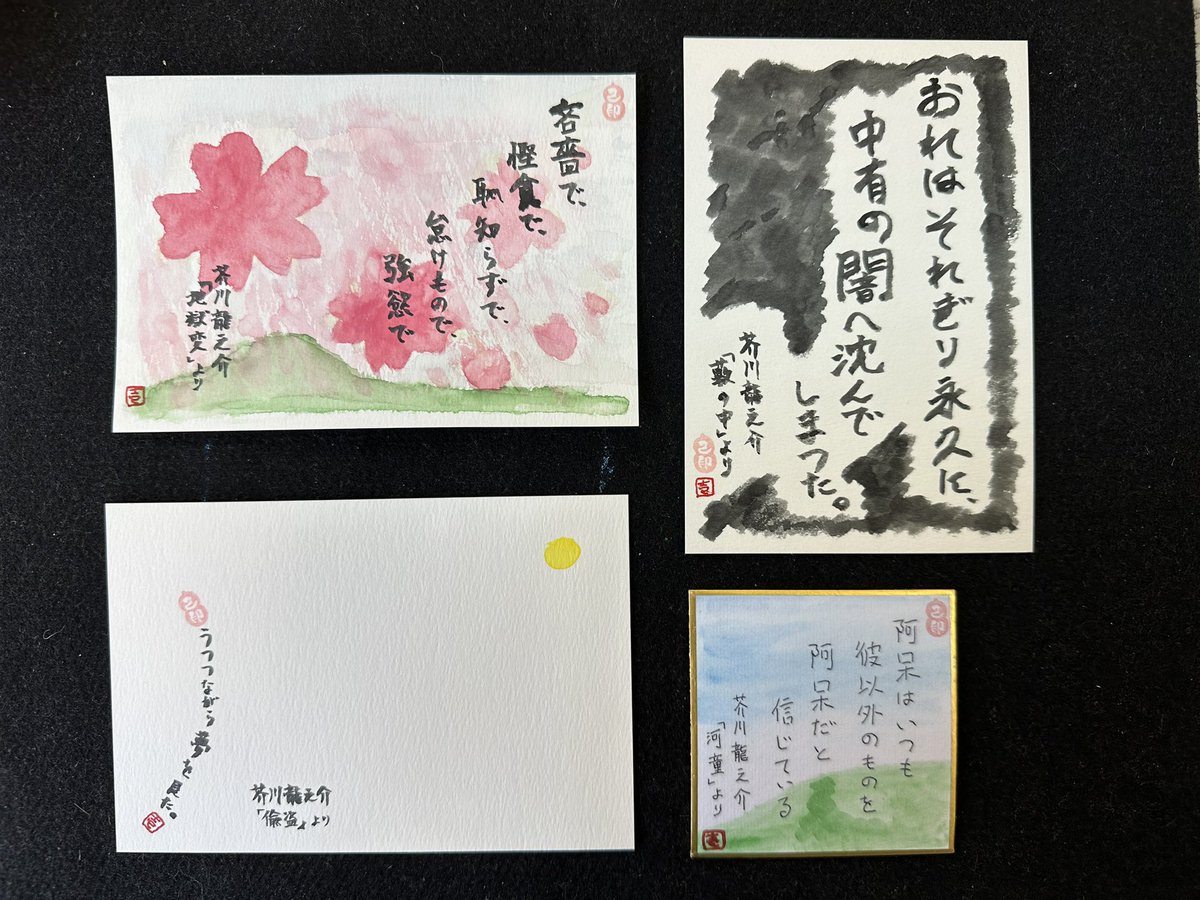 吝嗇で、
慳貪で、
恥知らずで、
怠けもので、
強慾で
芥川龍之介
「地獄変」より
おれはそれぎり永久に、
中有の闇へ沈んで
しまつた。
芥川龍之介
「藪の中」より
うつつながら夢を見た。
芥川龍之介
「偸盗」より
阿呆はいつも
彼以外のものを
阿呆だと
信じている
芥川龍之介
「河童」より